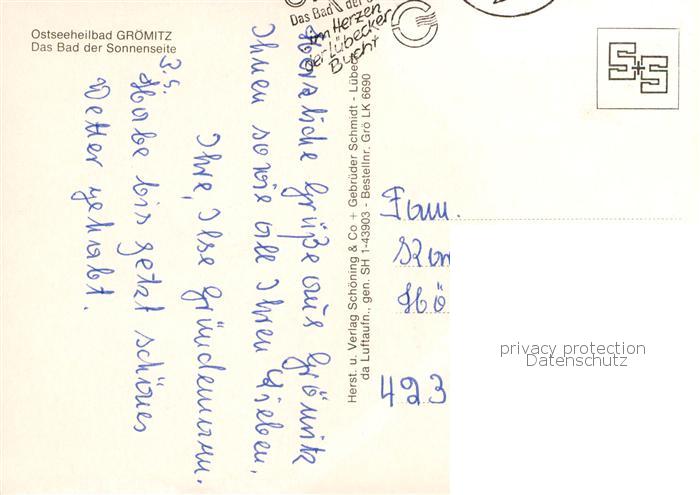 Ostseeheilbad GRÖMITZ
Das Bad der Sonnenseite
Das Bad der
Im Herzen
der Lübecker
Bucht
Herzliche Grüße aus Grömitz
Ihnen sowie all Ihren Lieben.
Ihre, Ilse Gründemann.
P.S.
Habe bis jetzt schönes
Wetter gehabt.
Herst. u. Verlag Schöning & Co + Gebrüder Schmidt - Lübeck
da Luftaufn., gen. SH 1-43903 - Bestellnr. Grö LK 6690
S+S
Fam.
Hö
423
privacy protection
Datenschutz